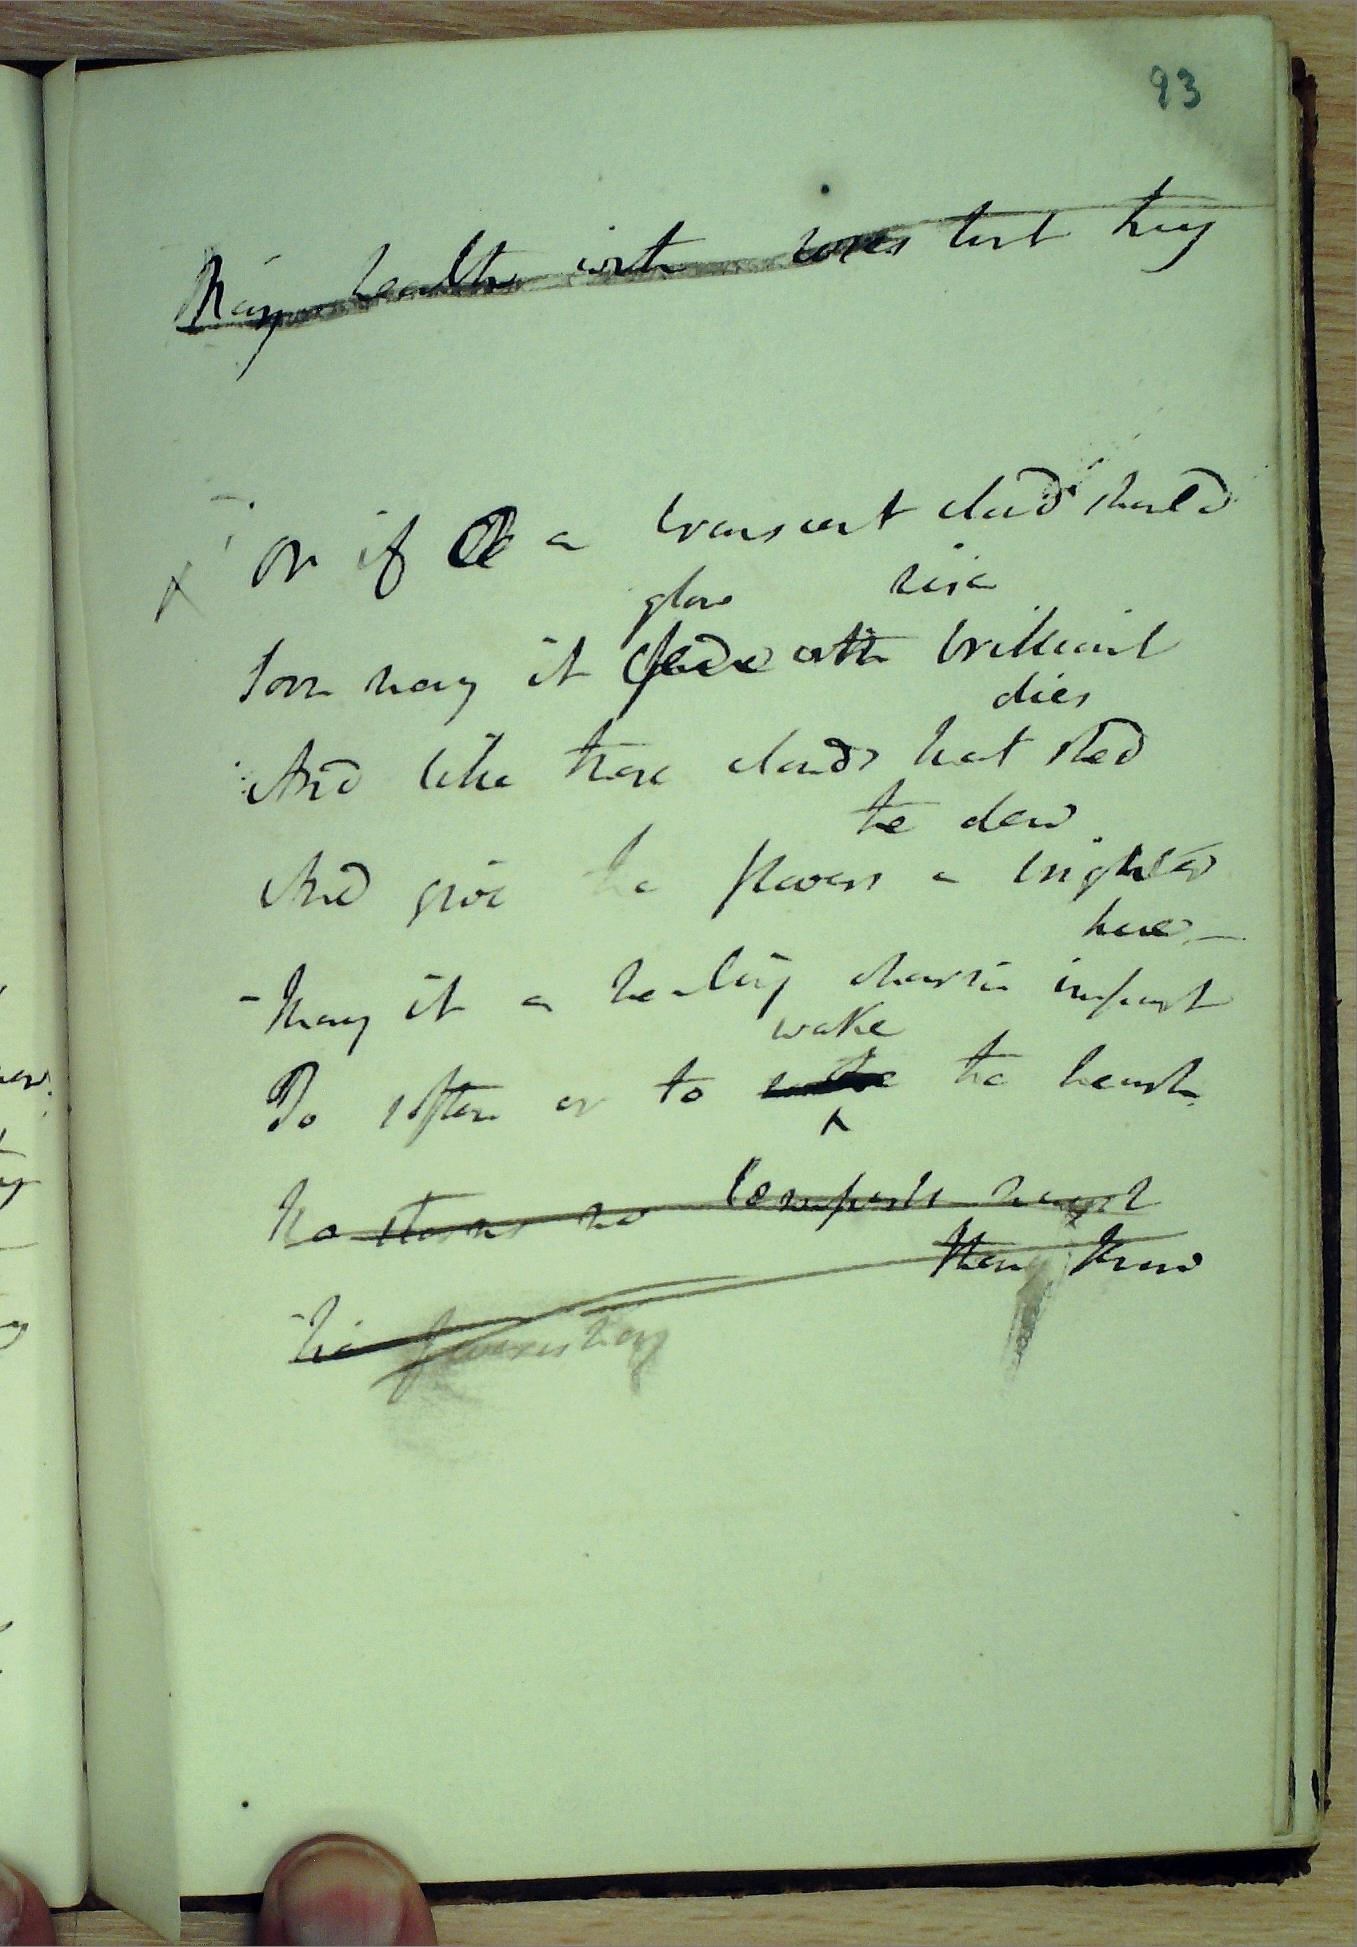 93
May health with roses tint thy
Or if a transient cloud should
rise
Soon may it glow with brilliant
dies
And like those clouds that shed
the dew
And give the flowers a brighter
hue -
May it a healing charm impart
To soften or to wake the heart.
No storms no tempests mayst
thou know